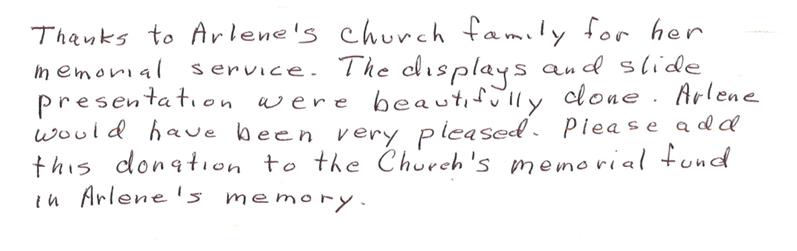 Thanks to Arlene's church family for her
memorial service. The displays and slide
presentation were beautifully done. Arlene
would have been very pleased. Please add
this donation to the Church's memorial fund
in Arlene's memory.